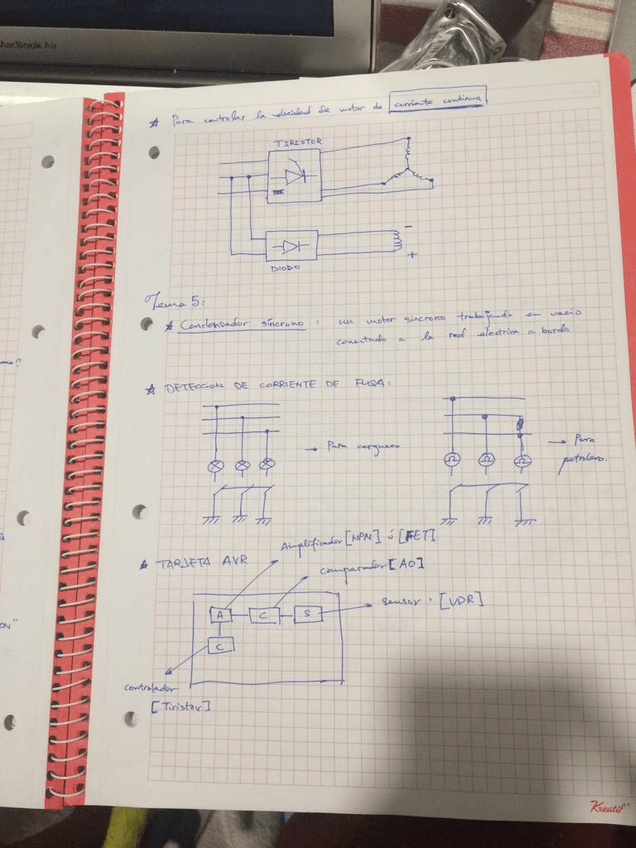 MacBook Air
★ Para controlar la velocidad de motor de corriente continua
TIRISTOR
-
+
DIODO
Tema 5:
★ Condensador síncrono : un motor sincrono trabajando en vacio
conectado a la red electrica a bordo
★ DETECCION DE CORRIENTE DE FUGA:
→ Para carguero
Ω Ω Ω
→ Para
petrolero.
Amplificador [NPN] ó [FET]
★ TARJETA AVR
comparador [AO]
A C S
sensor : [VDR]
C
controlador
[Tiristor]
Kreatif